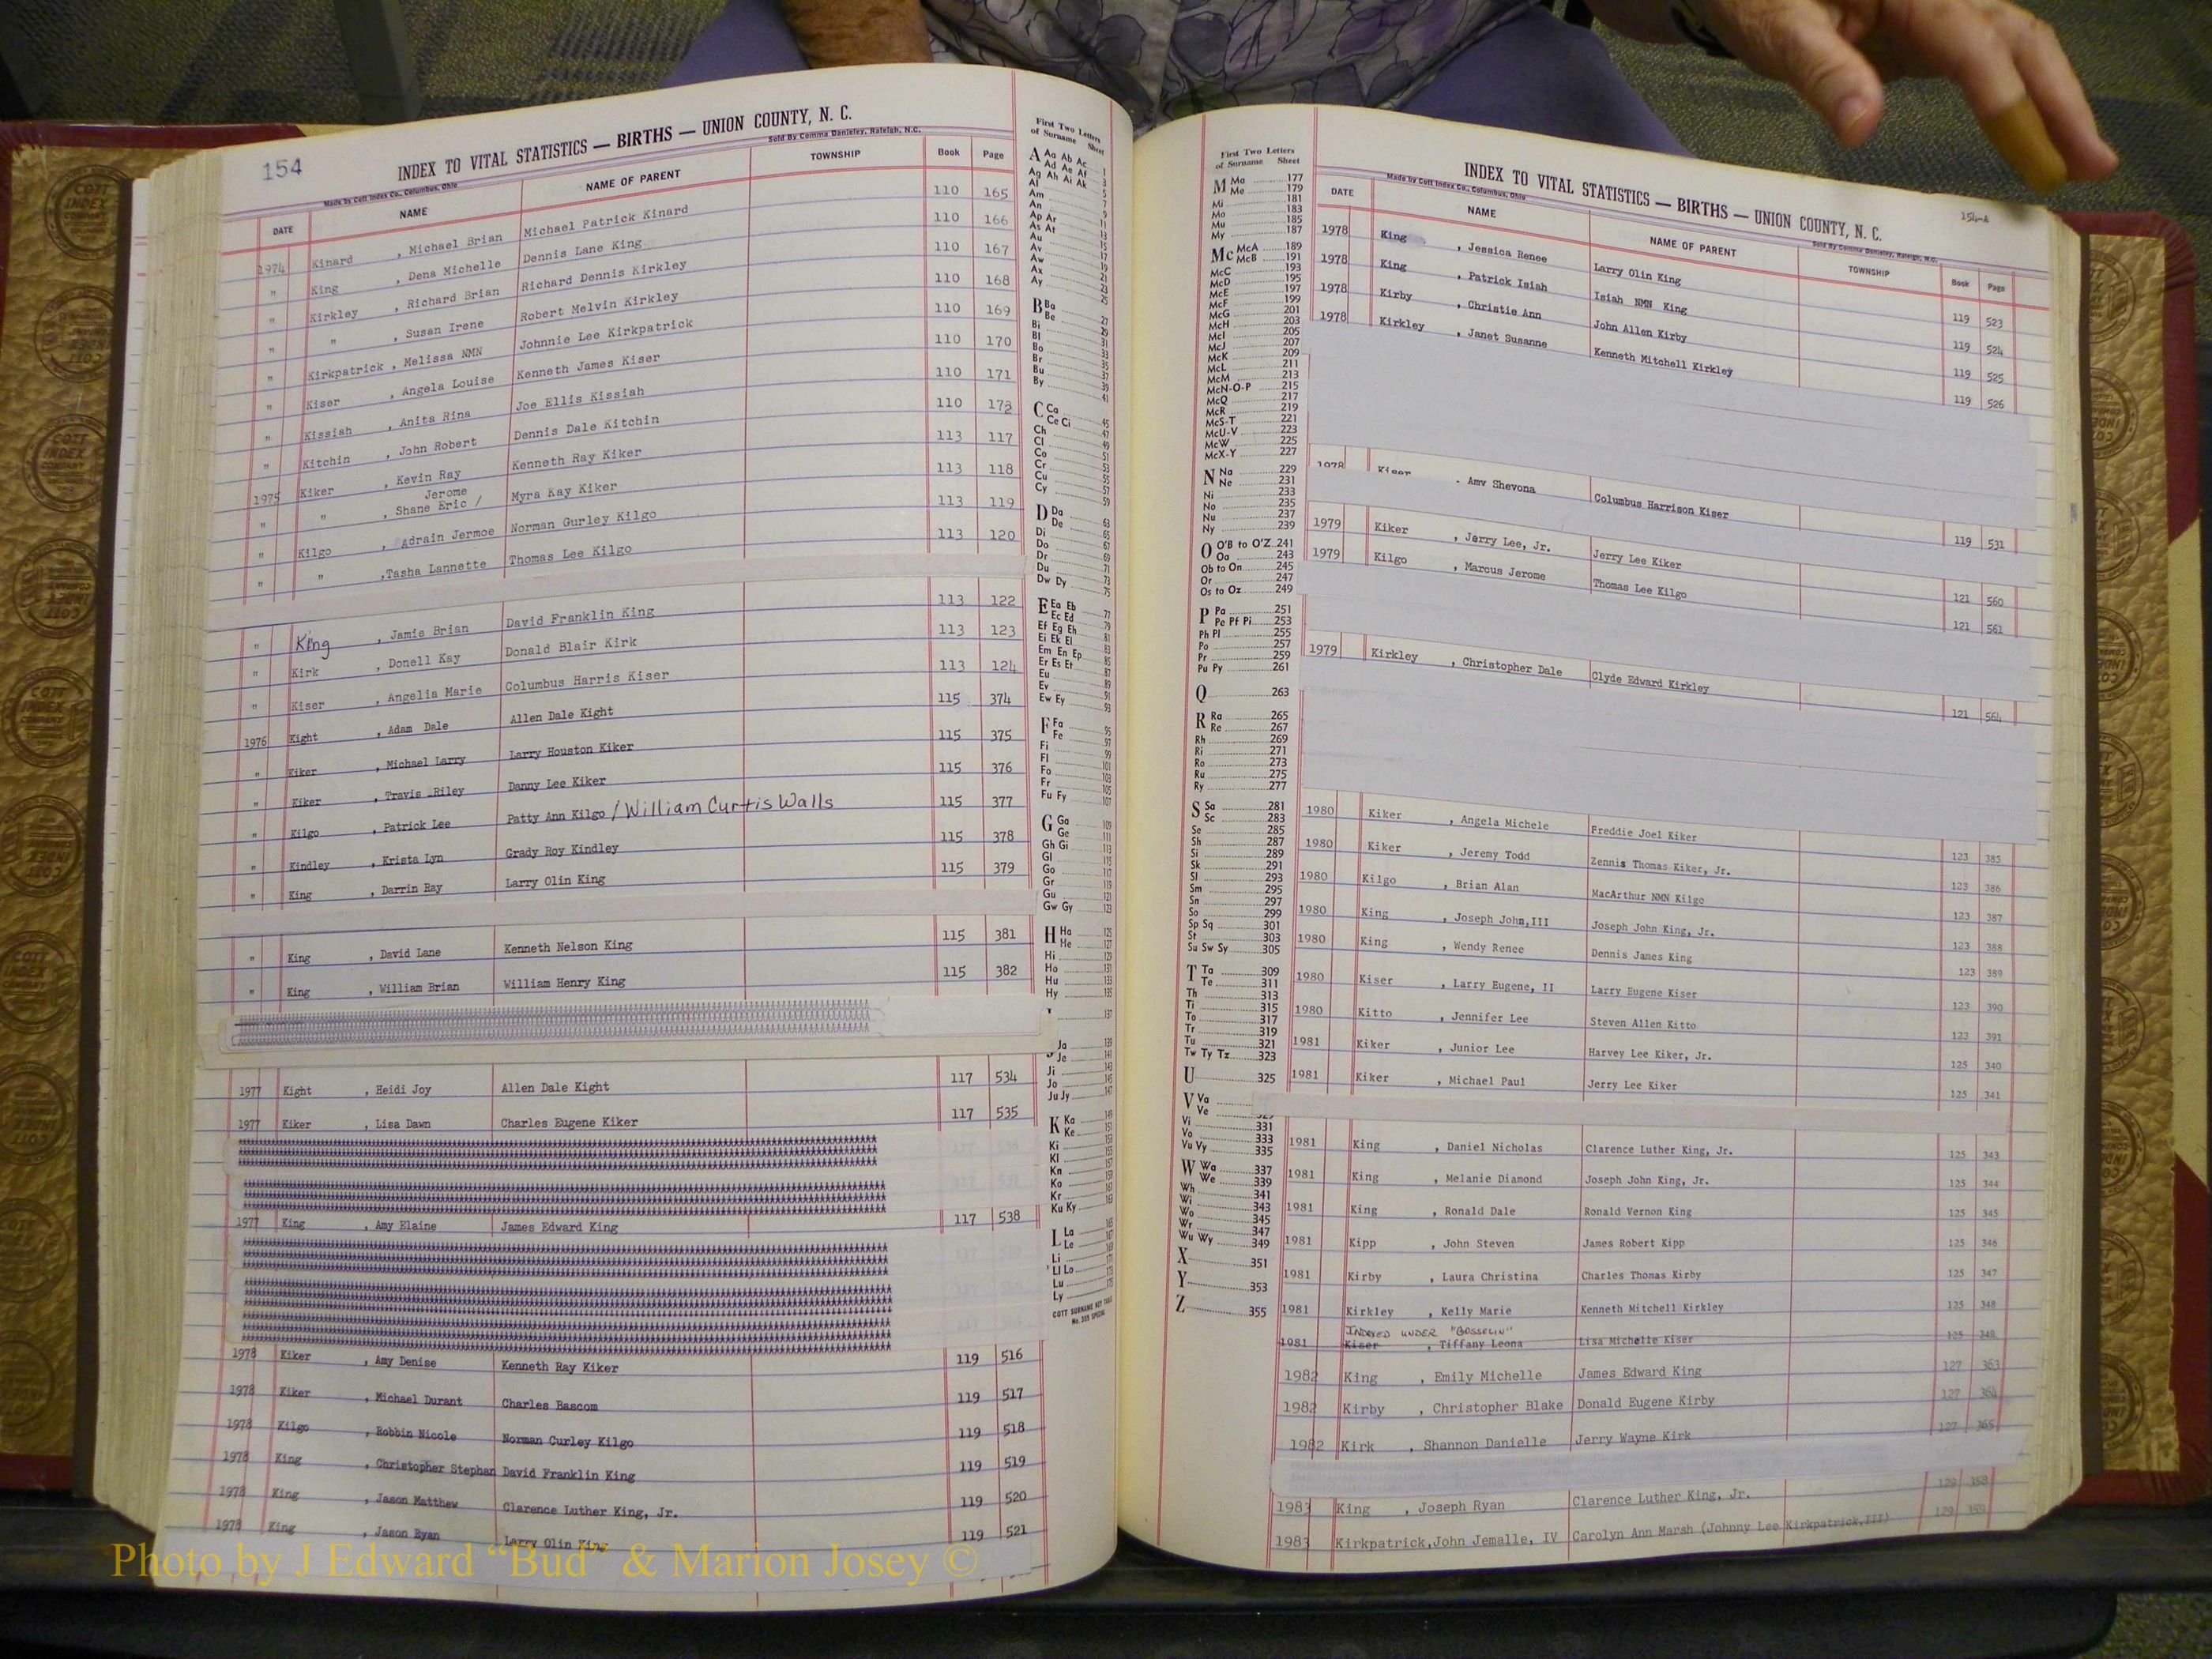 154
INDEX TO VITAL STATISTICS — BIRTHS — UNION COUNTY, N. C.
Made by Cott Index Co., Columbus, Ohio
Sold By Comma Danieley, Raleigh, N.C.
DATE NAME NAME OF PARENT TOWNSHIP Book Page
1974 Kinard , Michael Brian Michael Patrick Kinard 110 165
" King , Dena Michelle Dennis Lane King 110 166
" Kirkley , Richard Brian Richard Dennis Kirkley 110 167
" " , Susan Irene Robert Melvin Kirkley 110 168
" Kirkpatrick , Melissa NMN Johnnie Lee Kirkpatrick 110 169
" Kiser , Angela Louise Kenneth James Kiser 110 170
" Kissiah , Anita Rina Joe Ellis Kissiah 110 171
" Kitchin , John Robert Dennis Dale Kitchin 110
1975 Kiker , Kevin Ray Kenneth Ray Kiker 113 117
" " , Shane Eric / Jerome Myra Kay Kiker 113 118
" Kilgo , Adrain Jermoe Norman Gurley Kilgo 113 119
" " ,Tasha Lannette Thomas Lee Kilgo 113 120
" King , Jamie Brian David Franklin King 113 122
" Kirk , Donell Kay Donald Blair Kirk 113 123
" Kiser , Angelia Marie Columbus Harris Kiser 113 124
1976 Kight , Adam Dale Allen Dale Kight 115 374
" Kiker , Michael Larry Larry Houston Kiker 115 375
" Kiker , Travis Riley Danny Lee Kiker 115 376
" Kilgo , Patrick Lee Patty Ann Kilgo / William Curtis Walls 115 377
" Kindley , Krista Lyn Grady Roy Kindley 115 378
" King , Darrin Ray Larry Olin King 115 379
" King , David Lane Kenneth Nelson King 115 381
" King , William Brian William Henry King 115 382
1977 Kight , Heidi Joy Allen Dale Kight 117 534
1977 Kiker , Lisa Dawn Charles Eugene Kiker 117 535
1977 King , Amy Elaine James Edward King 117 538
1978 Kiker , Amy Denise Kenneth Ray Kiker 119 516
1978 Kiker , Michael Durant Charles Bascom 119 517
1978 Kilgo , Robbin Nicole Norman Curley Kilgo 119 518
1978 King , Christopher Stephan David Franklin King 119 519
1978 King , Jason Matthew Clarence Luther King, Jr. 119 520
1978 King , Jason Ryan Larry Olin King 119 521
First Two Letters
of Surname Sheet
A Aa Ab Ac 1
Ad Ae Af 3
Ag Ah Ai Ak 5
Al
Am
An 9
Ap Ar 11
As At 13
Au 15
Av 17
Aw 19
Ax 21
Ay 23
25
B Ba 27
Be 29
Bi 31
Bl 33
Bo 35
Br 37
Bu 39
By 41
C Ca 45
Ce Ci 47
Ch 49
Cl 51
Co 53
Cr 55
Cu 57
Cy 59
D Da 63
De 65
Di 67
Do 69
Dr 71
Du 73
Dw Dy 75
E Ea Eb 77
Ec Ed 79
Ef Eg Eh 81
Ei Ek El 83
Em En Ep 85
Er Es Et 87
Eu 89
Ev 91
Ew Ey 93
F Fa 95
Fe 97
Fi 99
Fl 101
Fo 103
Fr 105
Fu Fy 107
G Ga 109
Ge 111
Gh Gi 113
Gl 115
Go 117
Gr 119
Gu 121
Gw Gy 123
H Ha 125
He 127
Hi 129
Ho 131
Hu 133
Hy 135
137
Ja 139
Je 141
Ji 143
Jo 145
Ju Jy 147
K Ka 149
Ke 151
Ki 153
Kl 155
Kn 157
Ko 159
Kr 161
Ku Ky 163
L La 165
Le 167
Li
Ll Lo
Lu
Ly
COTT SURNAME KEY TABLE
First Two Letters
of Surname Sheet
M Ma 177
Me 179
Mi 181
Mo 183
Mu 185
My 187
Mc McA 189
McB 191
McC 193
McD 195
McE 197
McF 199
McG 201
McH 203
McI 205
McJ 207
McK 209
McL 211
McM 213
McN-O-P 215
McQ 217
McR 219
McS-T 221
McU-V 223
McW 225
McX-Y 227
N Na 229
Ne 231
Ni 233
No 235
Nu 237
Ny 239
O O'B to O'Z 241
Oa 243
Ob to On 245
Or 247
Os to Oz 249
P Pa 251
Pe Pf Pi 253
Ph Pl 255
Po 257
Pr 259
Pu Py 261
Q 263
R Ra 265
Re 267
Rh 269
Ri 271
Ro 273
Ru 275
Ry 277
S Sa 281
Sc 283
Se 285
Sh 287
Si 289
Sk 291
Sl 293
Sm 295
Sn 297
So 299
Sp Sq 301
St 303
Su Sw Sy 305
T Ta 309
Te 311
Th 313
Ti 315
To 317
Tr 319
Tu 321
Tw Ty Tz 323
U 325
V Va
Ve
Vi 331
Vo 333
Vu Vy 335
W Wa 337
We 339
Wh 341
Wi 343
Wo 345
Wr 347
Wu Wy 349
X 351
Y 353
Z 355
154-A
INDEX TO VITAL STATISTICS — BIRTHS — UNION COUNTY, N. C.
Made by Cott Index Co., Columbus, Ohio
Sold By Comma Danieley, Raleigh, N.C.
DATE NAME NAME OF PARENT TOWNSHIP Book Page
1978 King , Jessica Renee Larry Olin King 119 523
1978 King , Patrick Isiah Isiah NMN King 119 524
1978 Kirby , Christie Ann John Allen Kirby 119 525
1978 Kirkley , Janet Susanne Kenneth Mitchell Kirkley 119 526
1978 Kiser , Amy Shevona Columbus Harrison Kiser 119 531
1979 Kiker , Jerry Lee, Jr. Jerry Lee Kiker 121 560
1979 Kilgo , Marcus Jerome Thomas Lee Kilgo 121 561
1979 Kirkley , Christopher Dale Clyde Edward Kirkley 121 564
1980 Kiker , Angela Michele Freddie Joel Kiker 123 385
1980 Kiker , Jeremy Todd Zennis Thomas Kiker, Jr. 123 386
1980 Kilgo , Brian Alan MacArthur NMN Kilgo 123 387
1980 King , Joseph John,III Joseph John King, Jr. 123 388
1980 King , Wendy Renee Dennis James King 123 389
1980 Kiser , Larry Eugene, II Larry Eugene Kiser 123 390
1980 Kitto , Jennifer Lee Steven Allen Kitto 123 391
1981 Kiker , Junior Lee Harvey Lee Kiker, Jr. 125 340
1981 Kiker , Michael Paul Jerry Lee Kiker 125 341
1981 King , Daniel Nicholas Clarence Luther King, Jr. 125 343
1981 King , Melanie Diamond Joseph John King, Jr. 125 344
1981 King , Ronald Dale Ronald Vernon King 125 345
1981 Kipp , John Steven James Robert Kipp 125 346
1981 Kirby , Laura Christina Charles Thomas Kirby 125 347
1981 Kirkley , Kelly Marie Kenneth Mitchell Kirkley 125 348
INDEXED UNDER "GOSSELIN"
1981 Kiser , Tiffany Leona Lisa Michelle Kiser 125
1982 King , Emily Michelle James Edward King 127 363
1982 Kirby , Christopher Blake Donald Eugene Kirby 127 364
1982 Kirk , Shannon Danielle Jerry Wayne Kirk 127 365
1983 King , Joseph Ryan Clarence Luther King, Jr. 129 158
1983 Kirkpatrick,John Jemalle, IV Carolyn Ann Marsh (Johnny Lee Kirkpatrick,III) 129 159
Photo by J Edward “Bud” & Marion Josey ©